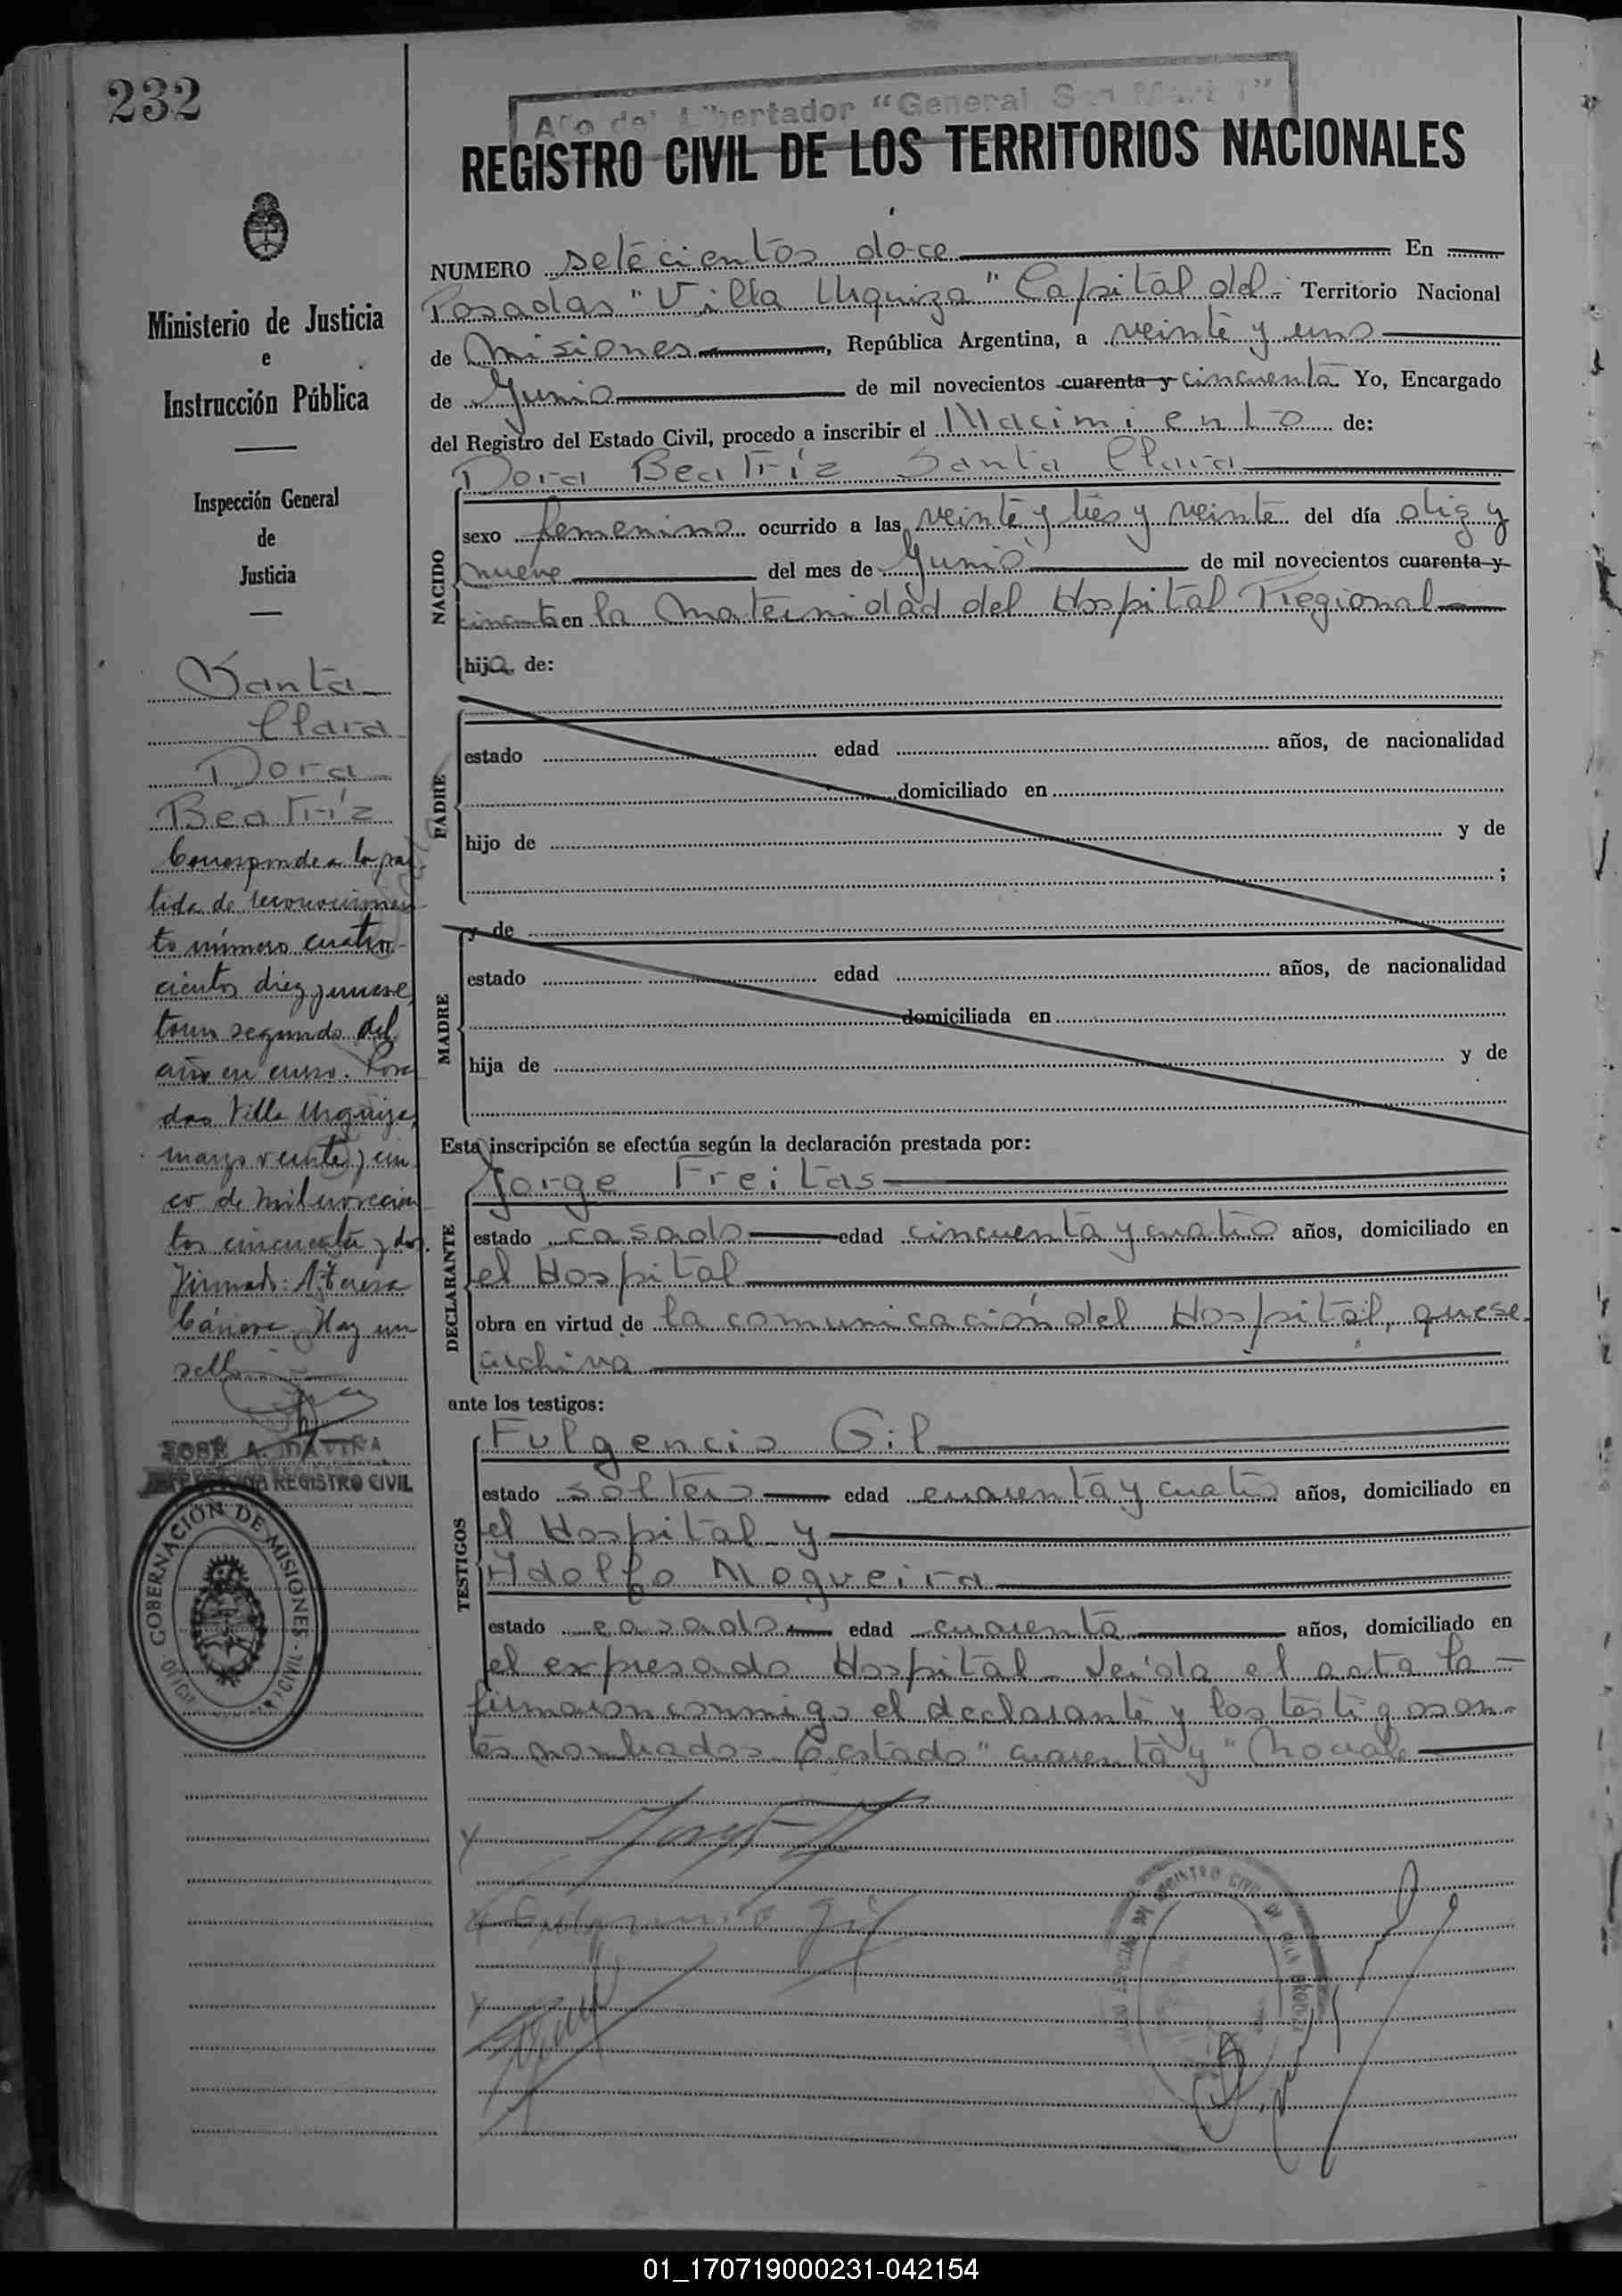 232
Año del Libertador "General San Martín"
REGISTRO CIVIL DE LOS TERRITORIOS NACIONALES
Ministerio de Justicia
e
Instrucción Pública
Inspección General
de
Justicia
Santa
Clara
Dora
Beatríz
Corresponde a la par
tida de reconocimien
to número cuatro
cientos diez y nueve
tomo segundo del
año en curso. Posa
das Villa Urquiza,
marzo veinte y cin
co de mil novecien
tos cincuenta y dos.
Firmado: A. Teresa
Cánera. Hay un
sello
JOSÉ A.
REGISTRO CIVIL
GOBERNACION DE MISIONES
CIVIL
NUMERO setecientos doce En
Posadas "Villa Urquiza" Capital del Territorio Nacional
de Misiones, República Argentina, a veinte y uno
de Junio de mil novecientos cuarenta y cincuenta Yo, Encargado
del Registro del Estado Civil, procedo a inscribir el Nacimiento de:
Dora Beatríz Santa Clara
NACIDO
sexo femenino ocurrido a las veinte y tres y veinte del día diez y
nueve del mes de Junio de mil novecientos cuarenta y
cincuenta en la Maternidad del Hospital Regional
hija de:
PADRE
estado edad años, de nacionalidad
domiciliado en
hijo de y de
;
MADRE
y de
estado edad años, de nacionalidad
domiciliada en
hija de y de
Esta inscripción se efectúa según la declaración prestada por:
DECLARANTE
Jorge Freitas
estado casado edad cincuenta y cuatro años, domiciliado en
el Hospital
obra en virtud de la comunicación del Hospital, que se
archiva
ante los testigos:
TESTIGOS
Fulgencio Gil
estado soltero edad cuarenta y cuatro años, domiciliado en
el Hospital y
Adolfo Nogueira
estado casado edad cuarenta años, domiciliado en
el expresado Hospital Leída el acta la
firmaron conmigo el declarante y los testigos an-
tes nombrados estado "cuarenta y" No vale
Gil
REGISTRO CIVIL DE VILLA URQUIZA
01_170719000231-042154